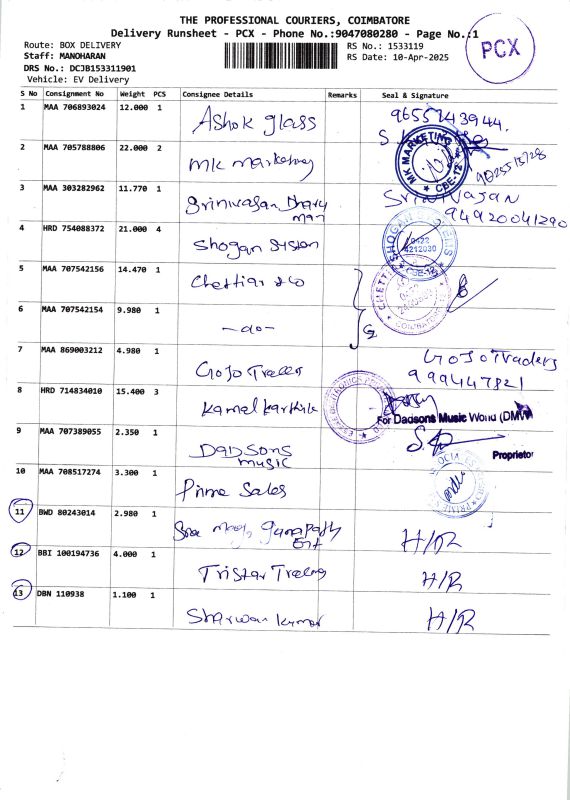 THE PROFESSIONAL COURIERS, COIMBATORE
Delivery Runsheet - PCX - Phone No.:9047080280 - Page No.:1
PCX
Route: BOX DELIVERY
Staff: MANOHARAN
DRS No.: DCJB153311901
Vehicle: EV Delivery
RS No.: 1533119
RS Date: 10-Apr-2025
S No Consignment No Weight PCS Consignee Details Remarks Seal & Signature
1 MAA 706893024 12.000 1 Ashok glass 9655743944.
2 MAA 705788806 22.000 2 MK Marketing MK MARKETING CBE-12
3 MAA 303282962 11.770 1 Srinivasan Srinivasan
94920041290
4 HRD 754088372 21.000 4 Shogan System SHOGAN 0422 4212030 CBE-12
5 MAA 707542156 14.470 1 Chettiar & Co
6 MAA 707542154 9.980 1 -do-
7 MAA 869003212 4.980 1 GoJo Traders GoJo Traders
999447821
8 HRD 714834010 15.400 3 Kamal
For Dadsons Music World (DMW)
9 MAA 707389055 2.350 1 DADSONS
MUSIC
Proprietor
10 MAA 708517274 3.300 1 Prime Sales
11 BWD 80243014 2.980 1 Sree H/R
12 BBI 100194736 4.000 1 Tristar Trading H/R
13 DBN 110938 1.100 1 Sharwan Kumar H/R